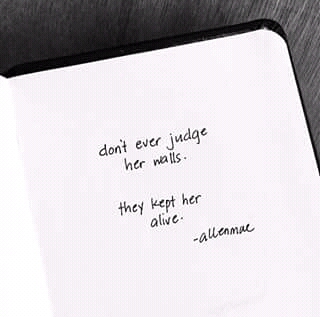 don't ever judge
her walls.
they kept her
alive.
-allenmae